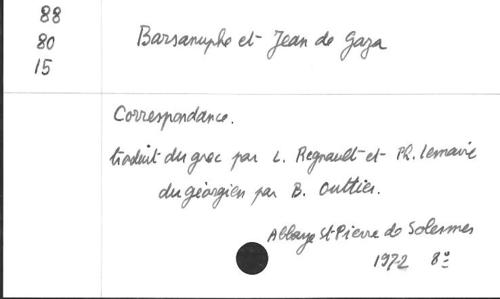 88
80
15
Barsanuphe et Jean de Gaza
Correspondance.
traduit du grec par L. Regnault et Ph. Lemaire
du géorgien par B. Outtier.
Abbaye St Pierre de Solesmes
1972 8°